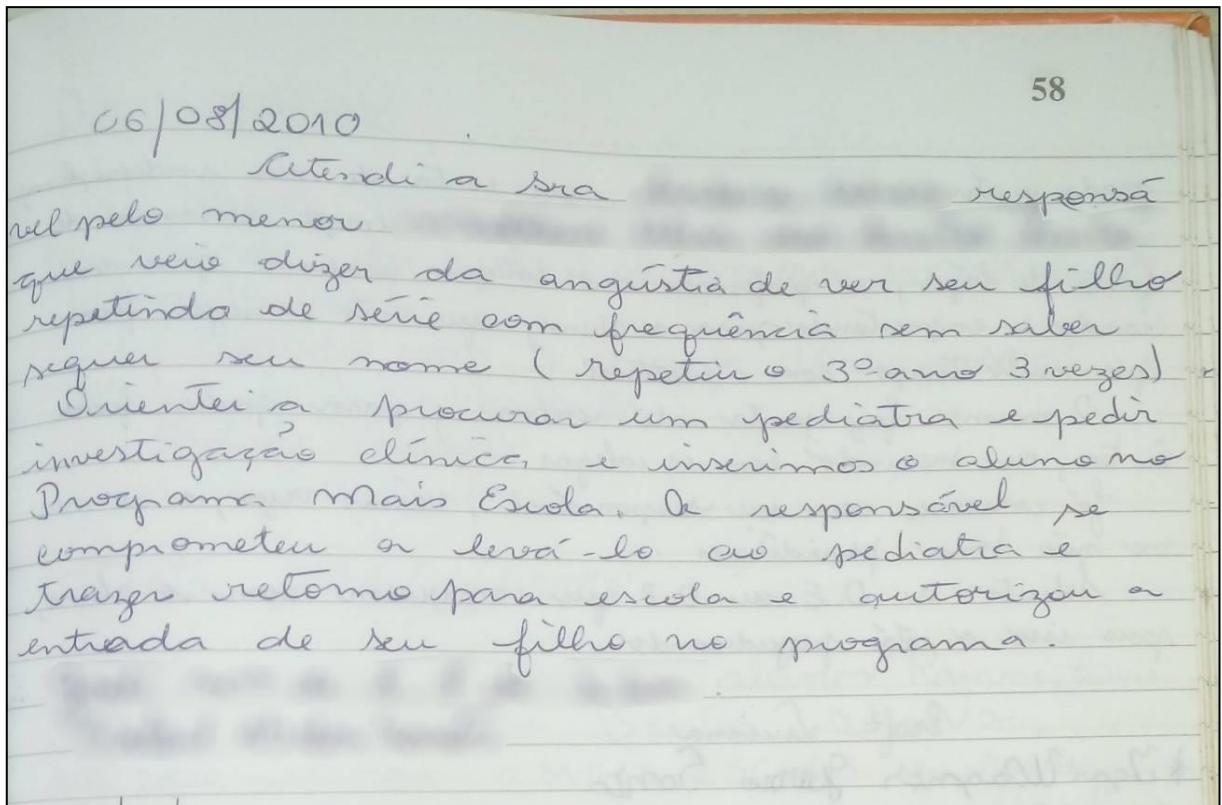 58
06/08/2010
Atendi a sra responsá
vel pelo menor
que veio dizer da angústia de ver seu filho
repetindo de série com frequência sem saber
sequer seu nome (repetiu o 3º ano 3 vezes)
Orientei a procurar um pediatra e pedir
investigação clínica, e inserimos o aluno no
Programa Mais Escola. A responsável se
comprometeu a levá-lo ao pediatra e
trazer retorno para escola e autorizou a
entrada de seu filho no programa.